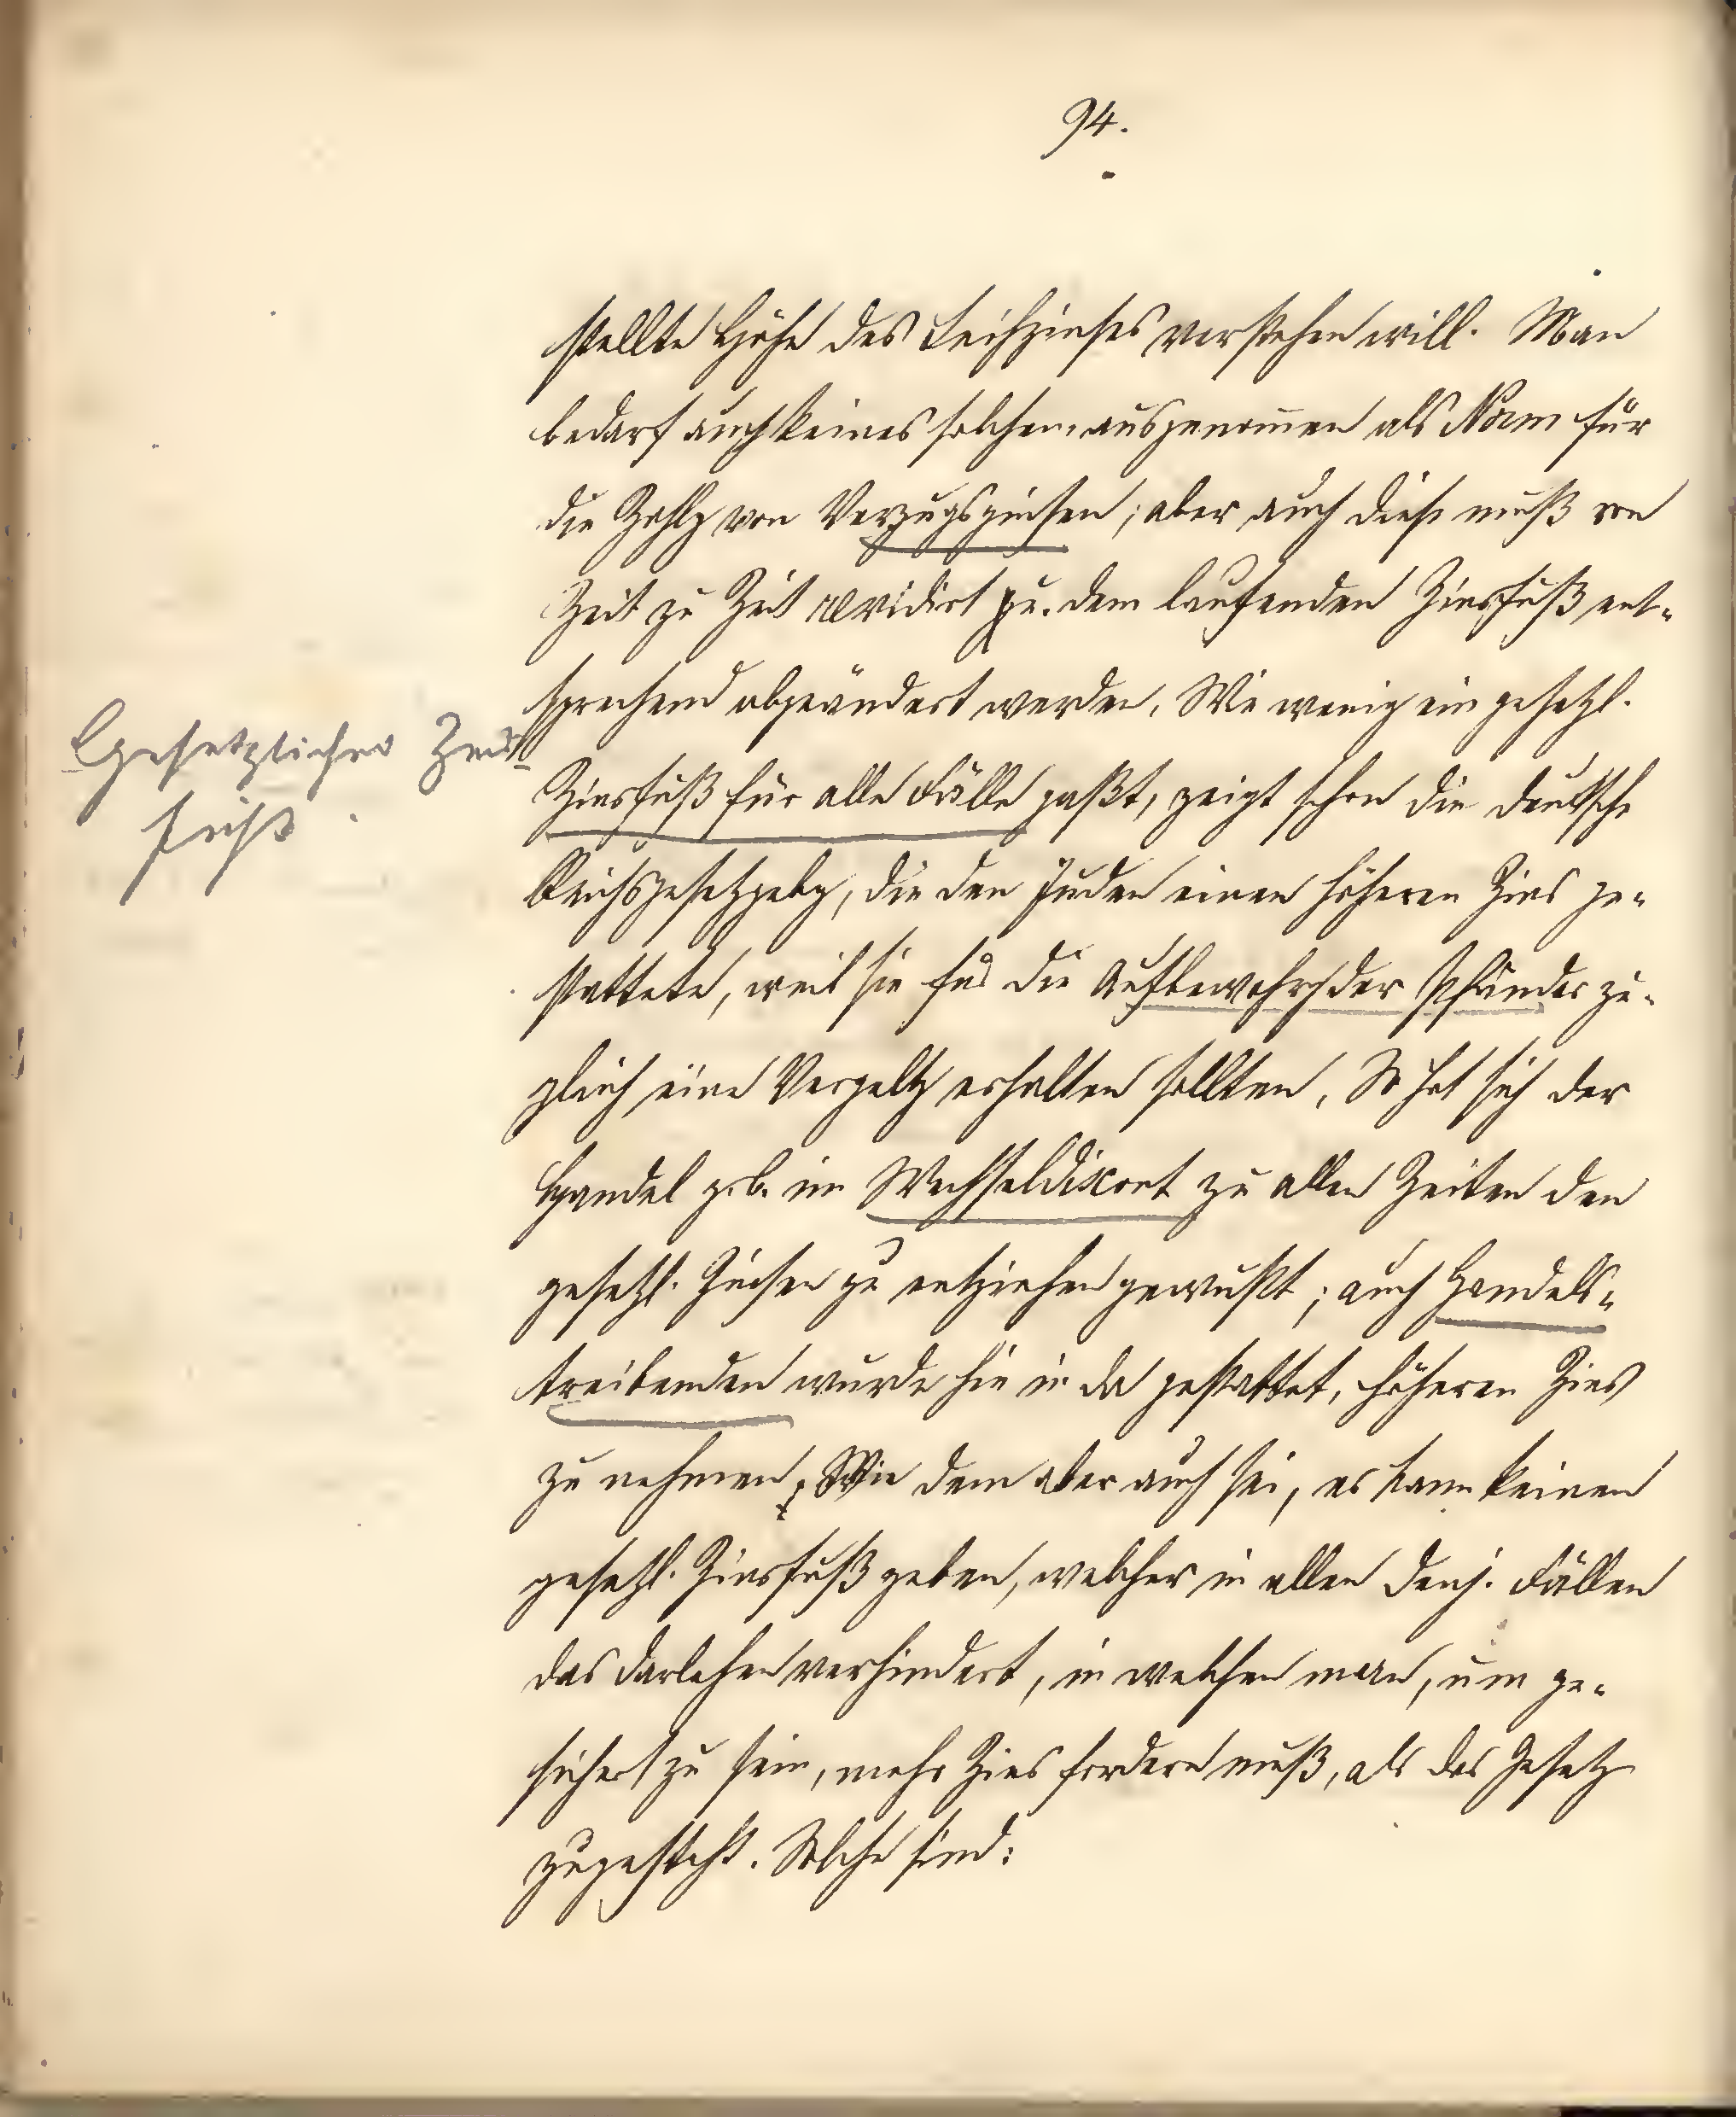 94.
stellte Höhe des Leihzinses verstehen will. Man
bedarf auch keines solchen, ausgenom̄en als Norm für
die Zahlg von Verzugszinsen; aber auch diese muß von
Zeit zu Zeit revidirt u. dem laufenden Zinsfuß ent-
sprechend abgeändert werden. Wie wenig ein gesetzl.
Gesetzlicher Zins-
fuß
Zinsfuß für alle Fälle paßt, zeigt schon die deutsche
Reichsgesetzgebg, die den Juden einen höheren Zins ge-
stattete, weil sie für die Aufbewahrg der Pfänder zu-
gleich eine Vergeltg erhalten sollten. So hat sich der
Handel z. b. im Wechseldiscont zu allen Zeiten den
gesetzl. Zinsen zu entziehen gewußt; auch Handels-
treibenden wurde hie u. da gestattet, höheren Zins
zu nehmen. Wie dem aber auch sei, es kann keinen
gesetzl. Zinsfuß geben, welcher in allen denj. Fällen
das Darlehen verhindert, in welchen man, um ge-
sichert zu sein, mehr Zins fordern muß, als das Gesetz
zugesteht. Solche sind: